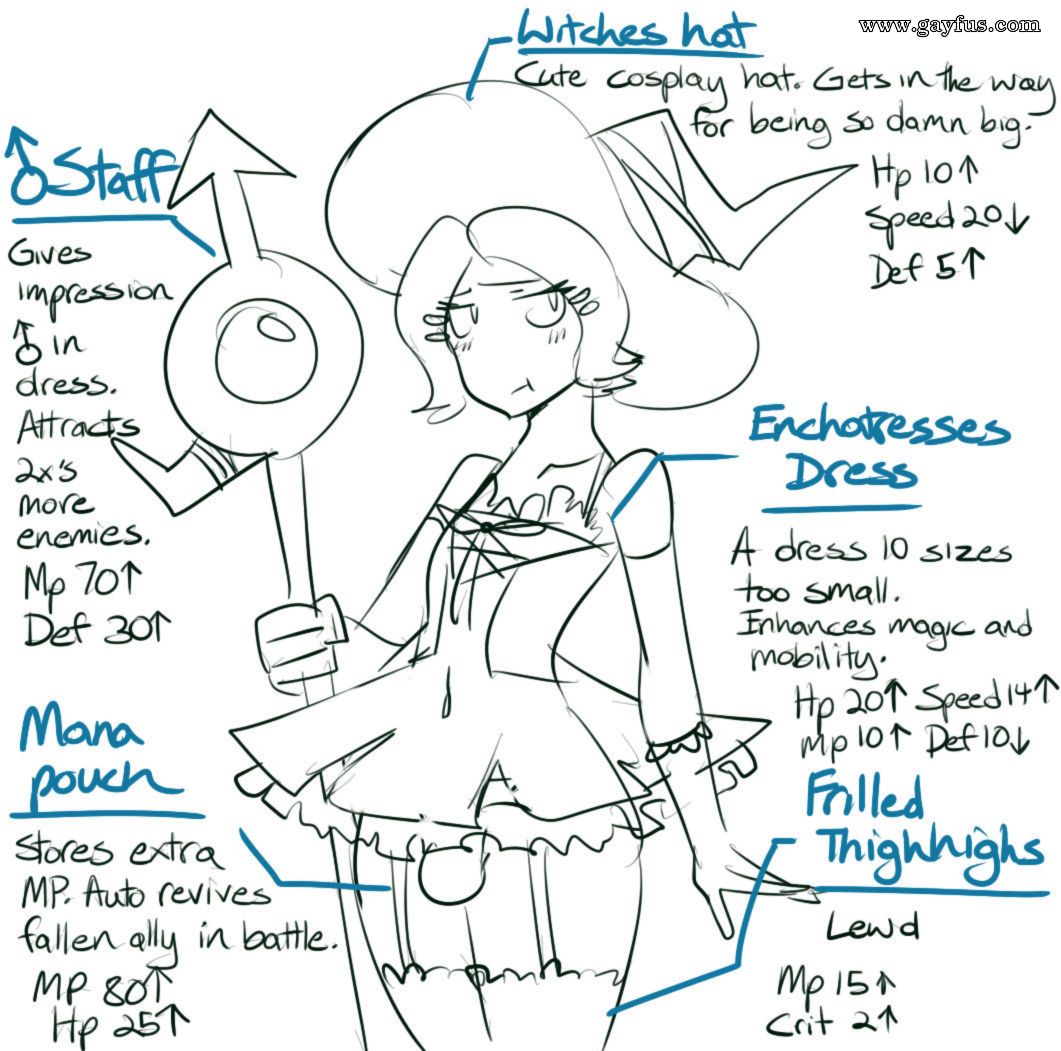 www.gayfus.com
Witches hat
Cute cosplay hat. Gets in the way
for being so damn big.
Hp 10↑
Speed 20↓
Def 5↑
♂Staff
Gives
impression
♂ in
dress.
Attracts
2x's
more
enemies.
Mp 70↑
Def 30↑
Enchatresses
Dress
A dress 10 sizes
too small.
Enhances magic and
mobility.
Hp 20↑ Speed 14↑
Mp 10↑ Def 10↓
Mana
pouch
Stores extra
MP. Auto revives
fallen ally in battle.
MP 80↑
Hp 25↑
Frilled
Thighhighs
Lewd
Mp 15↑
Crit 2↑